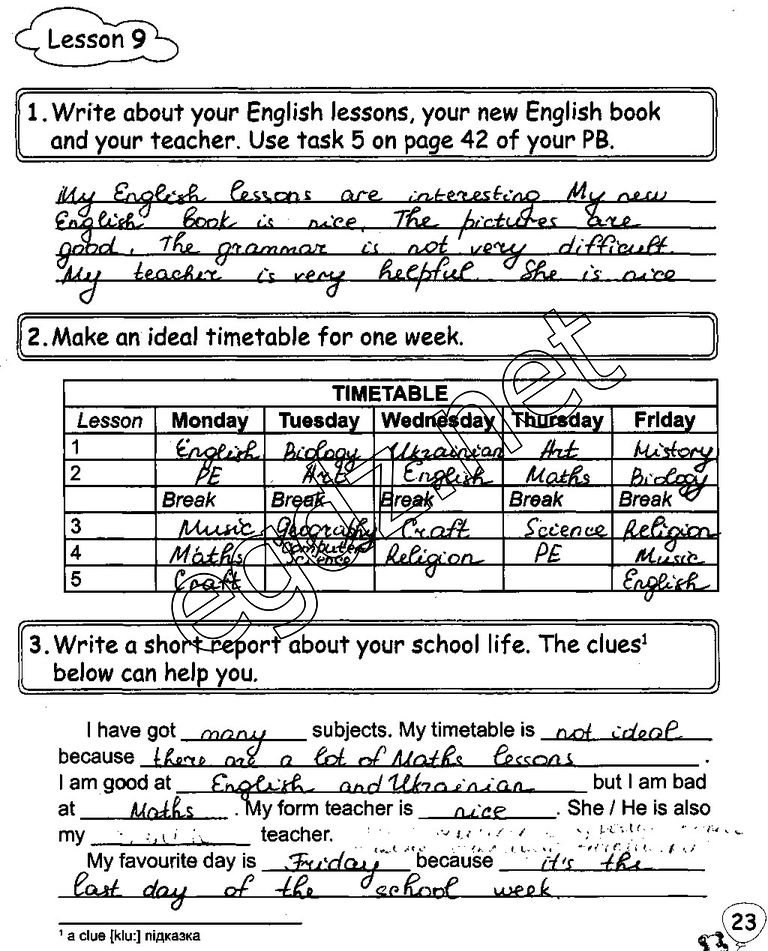 Lesson 9
1. Write about your English lessons, your new English book
and your teacher. Use task 5 on page 42 of your PB.
My English lessons are interesting My new
English book is nice. The pictures are
good. The grammar is not very difficult.
My teacher is very helpful. She is nice
2. Make an ideal timetable for one week.
TIMETABLE
Lesson Monday Tuesday Wednesday Thursday Friday
1 English Biology Ukrainian Art Mistory
2 PE Art English Maths Biology
Break Break Break Break Break
3 Music Geography Craft Science Religion
4 Maths Computer Science Religion PE Music
5 Craft English
egdz.net
3. Write a short report about your school life. The clues¹
below can help you.
I have got many subjects. My timetable is not ideal
because there are a lot of Maths lessons.
I am good at English and Ukrainian but I am bad
at Maths. My form teacher is nice. She / He is also
my teacher.
My favourite day is Friday because it's the
last day of the school week
¹ a clue [klu:] підказка
23